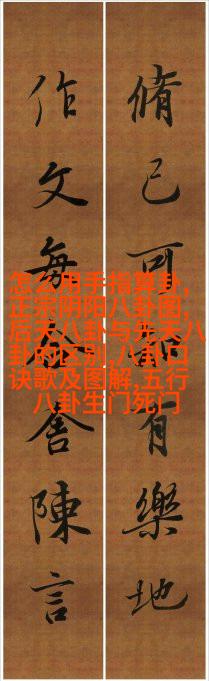 脩己可有樂地
作文每舍陳言
怎么用手指算卦,
正宗阴阳八卦图,
后天八卦与先天八
卦的区别,八卦口
诀歌及图解,五行
八卦生门死门